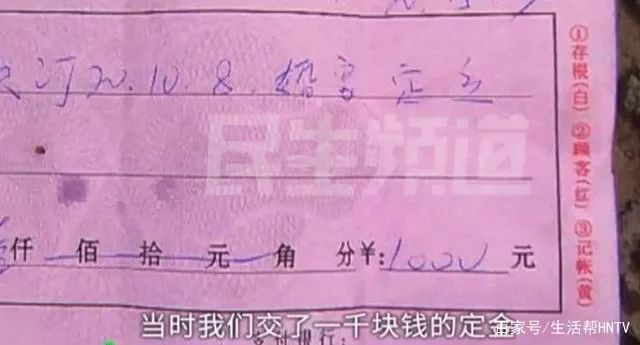 订20.10.8.婚宴定之
民生频道
仟佰拾元角分¥:1000元
①存根(白)②顾客(红)③记帐(黄)
当时我们交了一千块钱的定金
百家号/生活帮HNTV